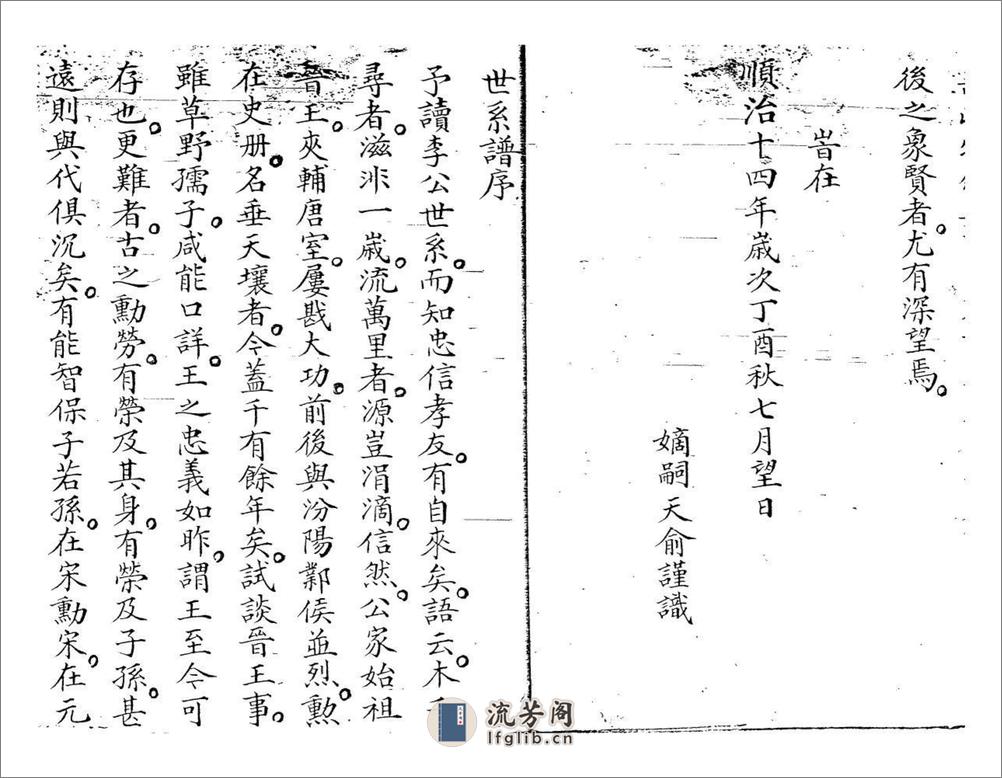 後之象賢者尤有深望焉。
旹在
順治十四年歲次丁酉秋七月望日
嫡嗣天俞謹識
世系譜序
予讀李公世系。而知忠信孝友。有自來矣。語云。木千
尋者。滋非一歲。流萬里者。源豈涓滴。信然。公家始祖
晉王。夾輔唐室。屢戡大功。前後與汾陽鄴侯並烈。勲
在史册。名垂天壤者。今蓋千有餘年矣。試談晉王事。
雖草野孺子。咸能口詳。王之忠義如昨。謂王至今可
存也。更難者。古之勳勞。有榮及其身。有榮及子孫。甚
遠則與代俱沉矣。有能智保子若孫。在宋勳宋。在元
流芳阁
lfglib.cn